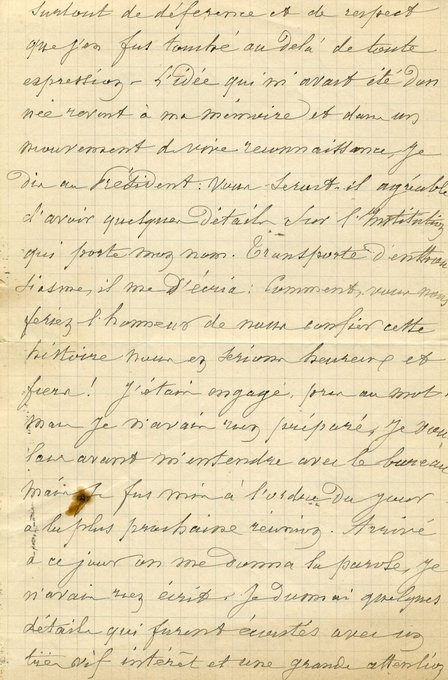 surtout de déférence et de respect
que j'en fus touché au delà de toute
expression. L'idée qui m'avait été don
née revint à ma mémoire et dans un
mouvement de vive reconnaissance, je
dis au Président: vous serait-il agréable
d'avoir quelques détails sur l'Institution
qui porte mon nom. Transporté d'enthou
siasme, il me s'écria: Comment, vous nous
feriez l'honneur de nous confier cette
histoire nous en serions heureux et
fiers! J'étais engagé, pris au mot
mais je n'avais rien préparé, je vou
lais avant m'entendre avec le bureau
mais je fus mis à l'ordre du jour
à la plus prochaine réunion. Arrivé
à ce jour on me donna la parole, je
n'avais rien écrit. Je donnai quelques
détails qui furent écoutés avec un
très vif intérêt et une grande attention